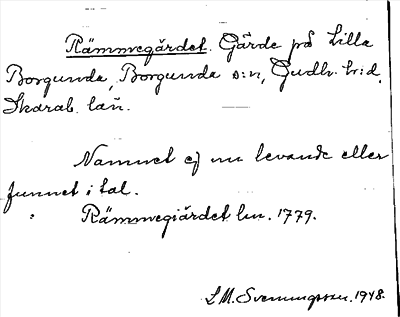 Rämmegärdet. Gärde på Lilla
Borgunda, Borgunda s:n, Gudh. h:d,
Skarab. län.
Namnet ej nu levande eller
funnet i tal.
Rämmegiärdet lm. 1779.
L.M. Svenungsson. 1948.